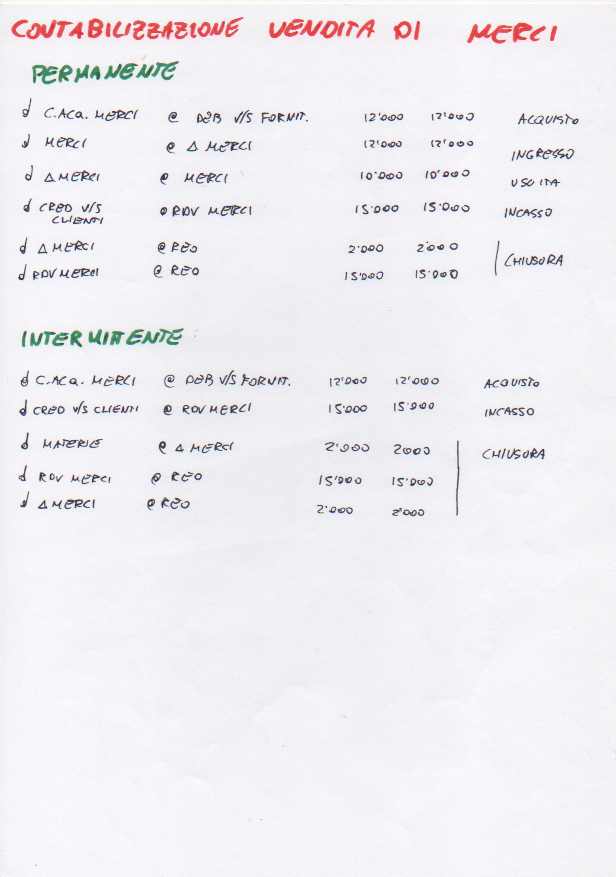 CONTABILIZZAZIONE VENDITA DI MERCI
PERMANENTE
d C.ACQ. MERCI @ DEB V/S FORNIT. 12'000 12'000 ACQUISTO
d MERCI @ Δ MERCI 12'000 12'000 INGRESSO
d Δ MERCI @ MERCI 10'000 10'000 USCITA
d CRED V/S CLIENTI @ RDV MERCI 15'000 15'000 INCASSO
d Δ MERCI @ REO 2'000 2'000 CHIUSURA
d RDV MERCI @ REO 15'000 15'000
INTERMITTENTE
d C.ACQ. MERCI @ DEB V/S FORNIT. 12'000 12'000 ACQUISTO
d CRED V/S CLIENTI @ RDV MERCI 15'000 15'000 INCASSO
d MATERIE @ Δ MERCI 2'000 2000 CHIUSURA
d RDV MERCI @ REO 15'000 15'000
d Δ MERCI @ REO 2'000 2'000